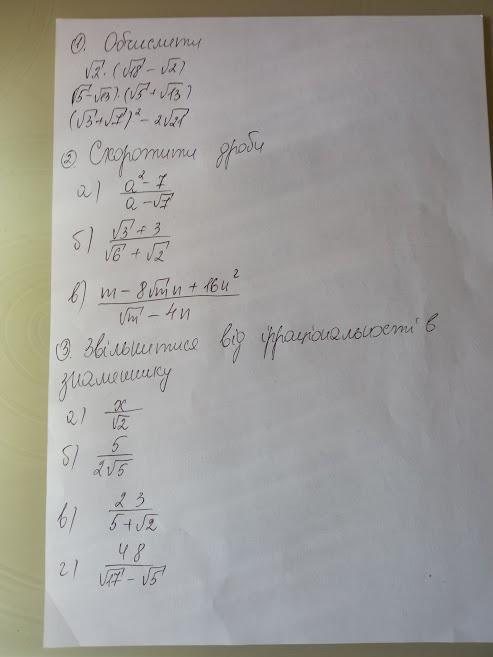 ①. Обчислити
√2 · (√18 - √2)
(√5-√13) · (√5 + √13)
(√3+√7)² - 2√21
② Скоротити дроби
а) (a² - 7)/(a - √7)
б) (√3 + 3)/(√6 + √2)
в) (m - 8√m n + 16n²)/(√m - 4n)
③. Звільнитися від ірраціональності в
знаменнику
а) x/√2
б) 5/(2√5)
в) 23/(5+√2)
г) 48/(√17 - √5)